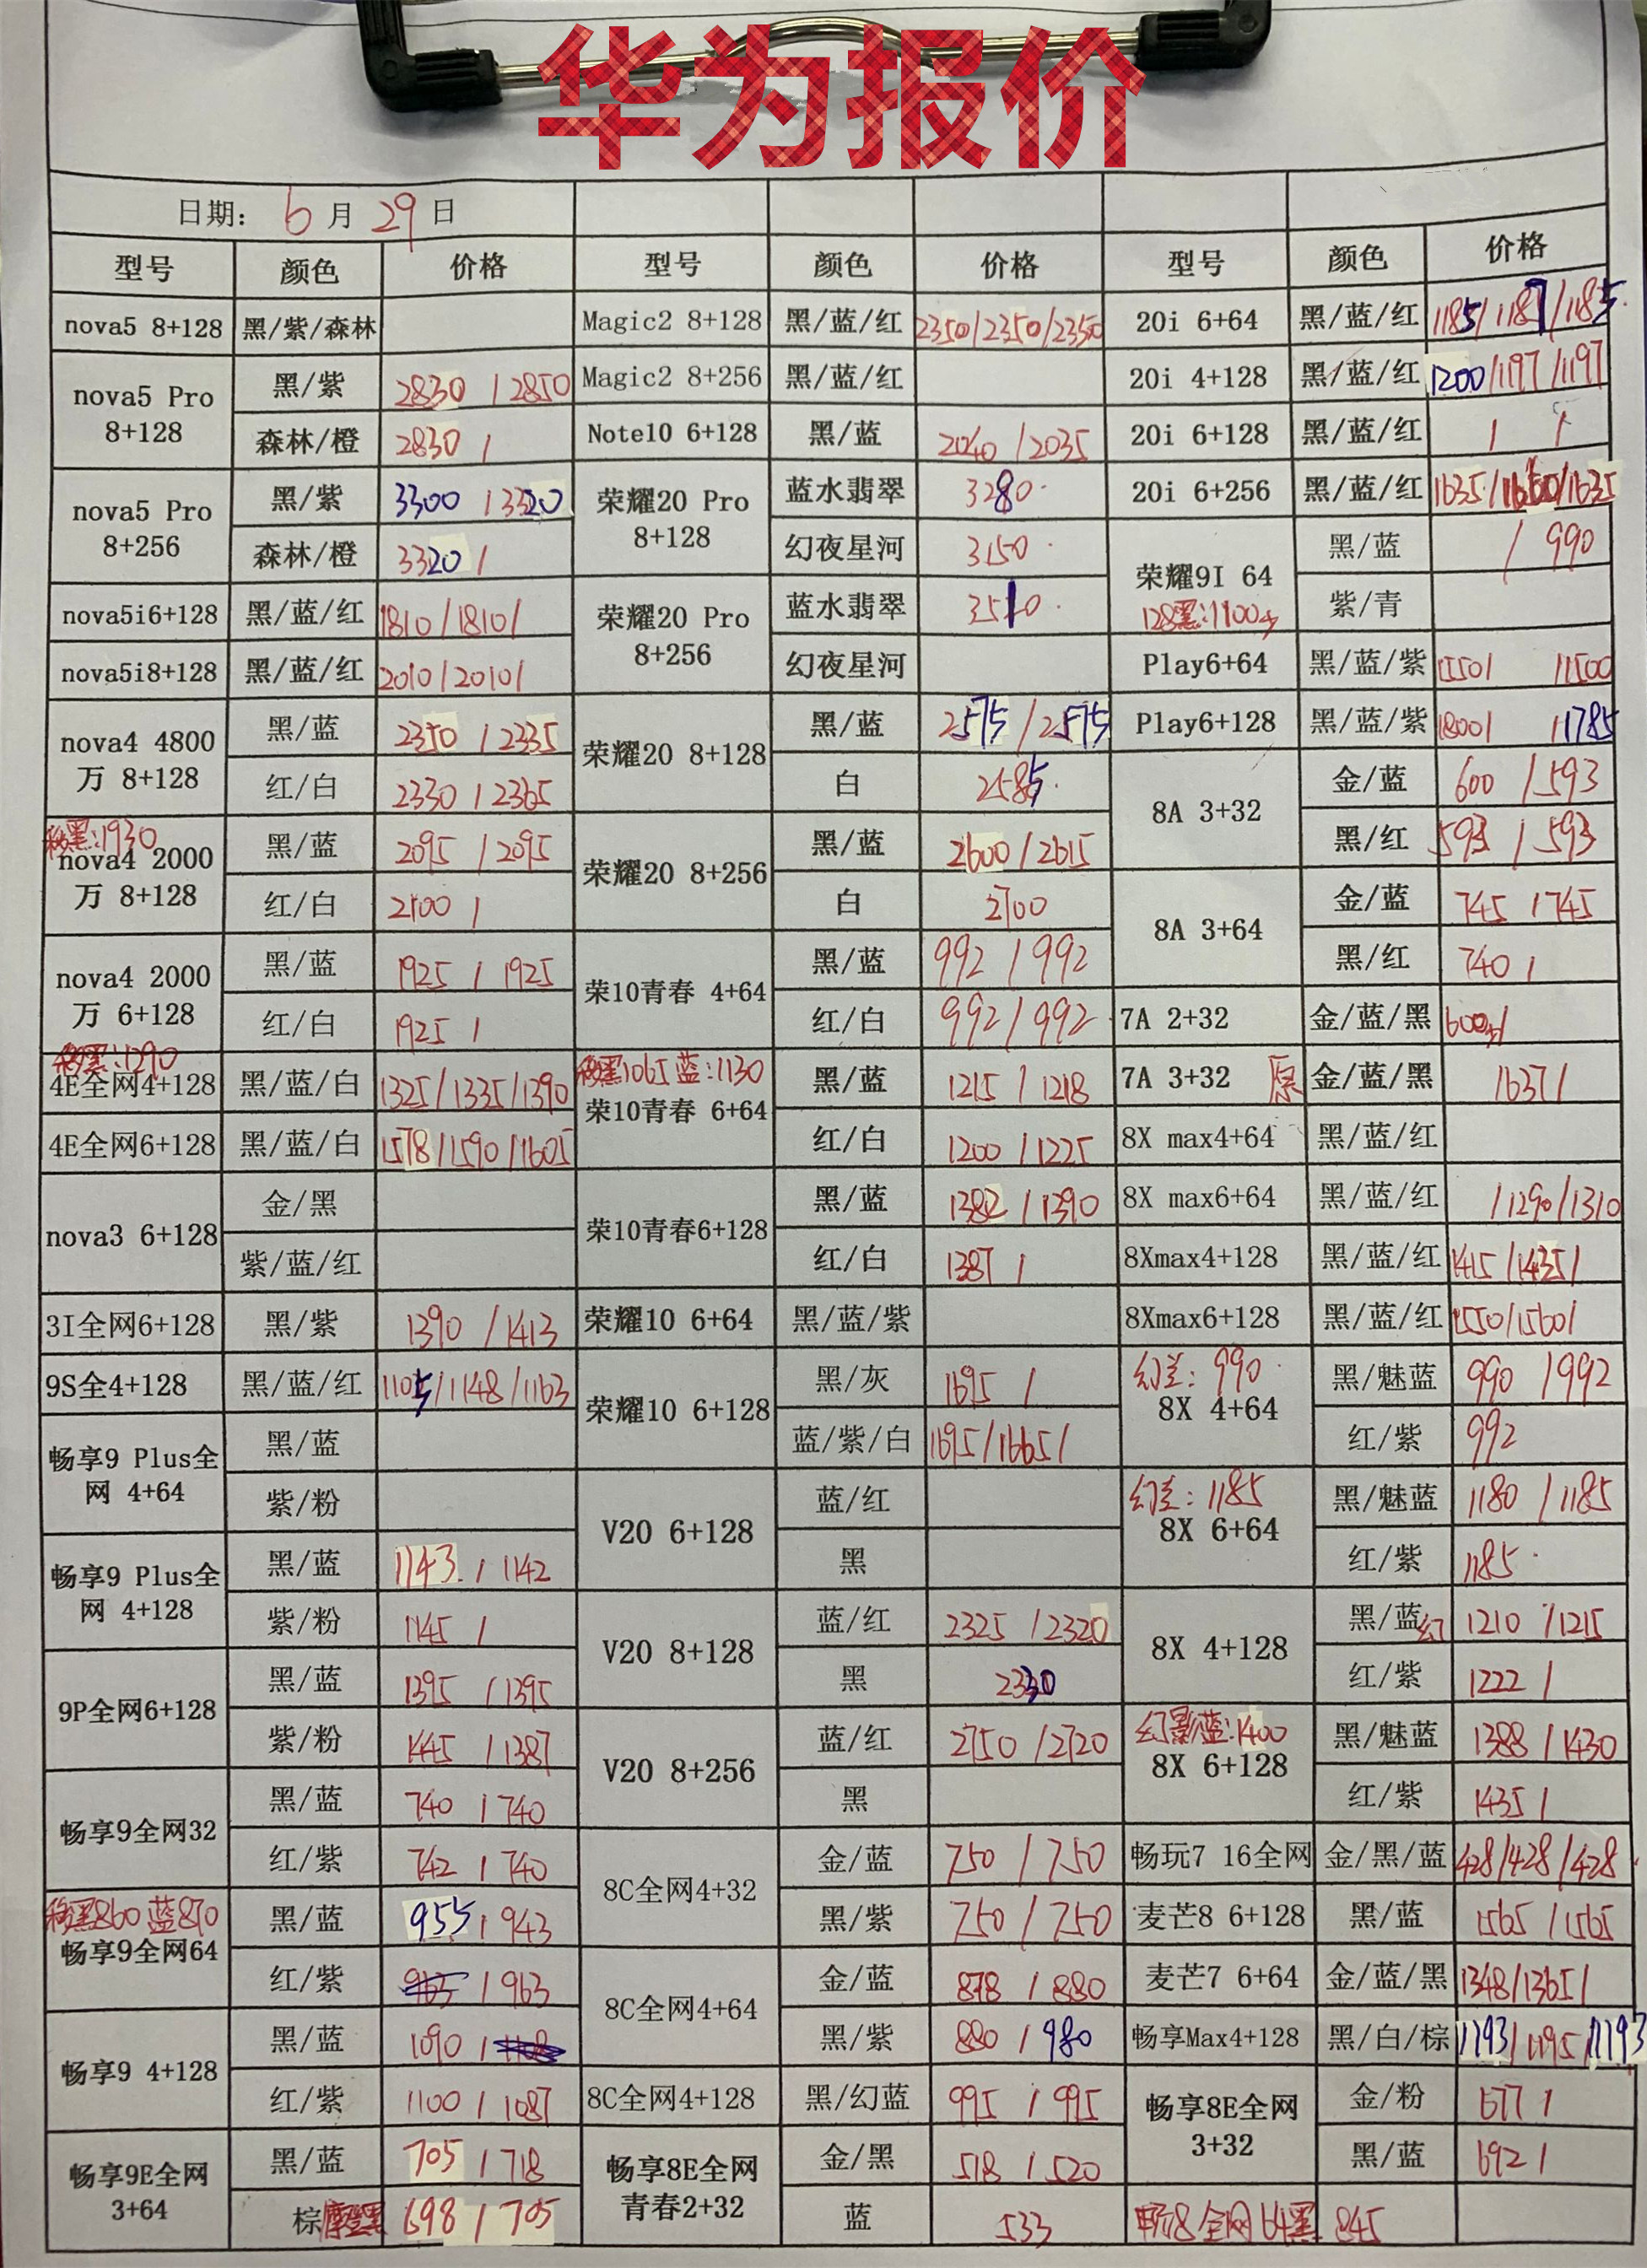 华为报价
日期: 6 月 29 日
型号 颜色 价格 型号 颜色 价格 型号 颜色 价格
nova5 8+128 黑/紫/森林
nova5 Pro 8+128 黑/紫 2830 / 2850
森林/橙 2830 /
nova5 Pro 8+256 黑/紫 3300 / 3320
森林/橙 3320 /
nova5i6+128 黑/蓝/红 1810/1810/
nova5i8+128 黑/蓝/红 2010/2010/
nova4 4800万 8+128 黑/蓝 2350 / 2335
红/白 2330 / 2365
移黑:1930
nova4 2000万 8+128 黑/蓝 2095 / 2095
红/白 2100 /
nova4 2000万 6+128 黑/蓝 1925 / 1925
红/白 1925 /
移黑:1290
4E全网4+128 黑/蓝/白 1325/1335/1390
4E全网6+128 黑/蓝/白 1578/1590/1605
nova3 6+128 金/黑
紫/蓝/红
3I全网6+128 黑/紫 1390 / 1413
9S全4+128 黑/蓝/红 1105/1148/1163
畅享9 Plus全网 4+64 黑/蓝
紫/粉
畅享9 Plus全网 4+128 黑/蓝 1143 / 1142
紫/粉 1145 /
9P全网6+128 黑/蓝 1395 / 1395
紫/粉 1445 / 1387
畅享9全网32 黑/蓝 740 / 740
红/紫 742 / 740
移黑860 蓝870
畅享9全网64 黑/蓝 955 / 943
红/紫 / 963
畅享9 4+128 黑/蓝 1090 /
红/紫 1100 / 1087
畅享9E全网 3+64 黑/蓝 705 / 718
棕 698 / 705
Magic2 8+128 黑/蓝/红 2350/2350/2350
Magic2 8+256 黑/蓝/红
Note10 6+128 黑/蓝 2040 / 2035
荣耀20 Pro 8+128 蓝水翡翠 3280
幻夜星河 3150
荣耀20 Pro 8+256 蓝水翡翠 3510
幻夜星河
荣耀20 8+128 黑/蓝 2575 / 2575
白 2585
荣耀20 8+256 黑/蓝 2600 / 2615
白 2700
荣10青春 4+64 黑/蓝 992 / 992
红/白 992 / 992
移黑1065 蓝:1130
荣10青春 6+64 黑/蓝 1215 / 1218
红/白 1200 / 1225
荣10青春6+128 黑/蓝 1382 / 1390
红/白 1387 /
荣耀10 6+64 黑/蓝/紫
荣耀10 6+128 黑/灰 1695 /
蓝/紫/白 1695/1665/
V20 6+128 蓝/红
黑
V20 8+128 蓝/红 2325 / 2320
黑 2330
V20 8+256 蓝/红 2750 / 2720
黑
8C全网4+32 金/蓝 750 / 750
黑/紫 750 / 750
8C全网4+64 金/蓝 878 / 880
黑/紫 880 / 980
8C全网4+128 黑/幻蓝 995 / 995
畅享8E全网青春2+32 金/黑 518 / 520
蓝 533
20i 6+64 黑/蓝/红 1185/1187/1185
20i 4+128 黑/蓝/红 1200/1197/1197
20i 6+128 黑/蓝/红 / /
20i 6+256 黑/蓝/红 1635/1660/1635
荣耀9I 64 黑/蓝 / 990
128黑:1100 紫/青
Play6+64 黑/蓝/紫 1550/ /1500
Play6+128 黑/蓝/紫 1800/ /1785
8A 3+32 金/蓝 600 / 593
黑/红 593 / 593
8A 3+64 金/蓝 745 / 745
黑/红 740 /
7A 2+32 金/蓝/黑 600
7A 3+32 原 金/蓝/黑 /637/
8X max4+64 黑/蓝/红
8X max6+64 黑/蓝/红 /1290/1310
8Xmax4+128 黑/蓝/红 1415/1435/
8Xmax6+128 黑/蓝/红 1550/1560/
幻兰: 990
8X 4+64 黑/魅蓝 990 / 992
红/紫 992
幻兰: 1185
8X 6+64 黑/魅蓝 1180 / 1185
红/紫 1185
8X 4+128 黑/蓝幻 1210 / 1215
红/紫 1222 /
幻影蓝:1400
8X 6+128 黑/魅蓝 1388 / 1430
红/紫 1435 /
畅玩7 16全网 金/黑/蓝 428/428/428
麦芒8 6+128 黑/蓝 1565 / 1565
麦芒7 6+64 金/蓝/黑 1348/1365/
畅享Max4+128 黑/白/棕 1193/1195/1193
畅享8E全网 3+32 金/粉 677 /
黑/蓝 692 /
畅8全网64黑 845